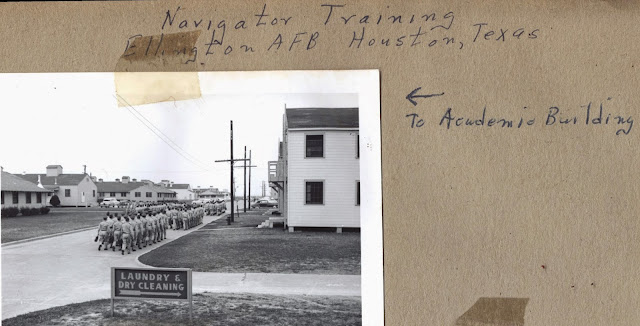 Navigator Training
Ellington AFB Houston, Texas
←
To Academic Building
LAUNDRY &
DRY CLEANING